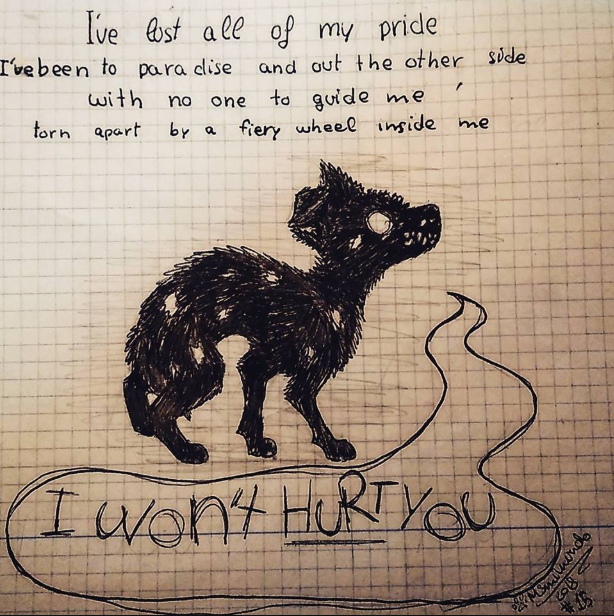 I've lost all of my pride
I'vebeen to paradise and out the other side
with no one to guide me
torn apart by a fiery wheel inside me
I WON'T HURT YOU
2018